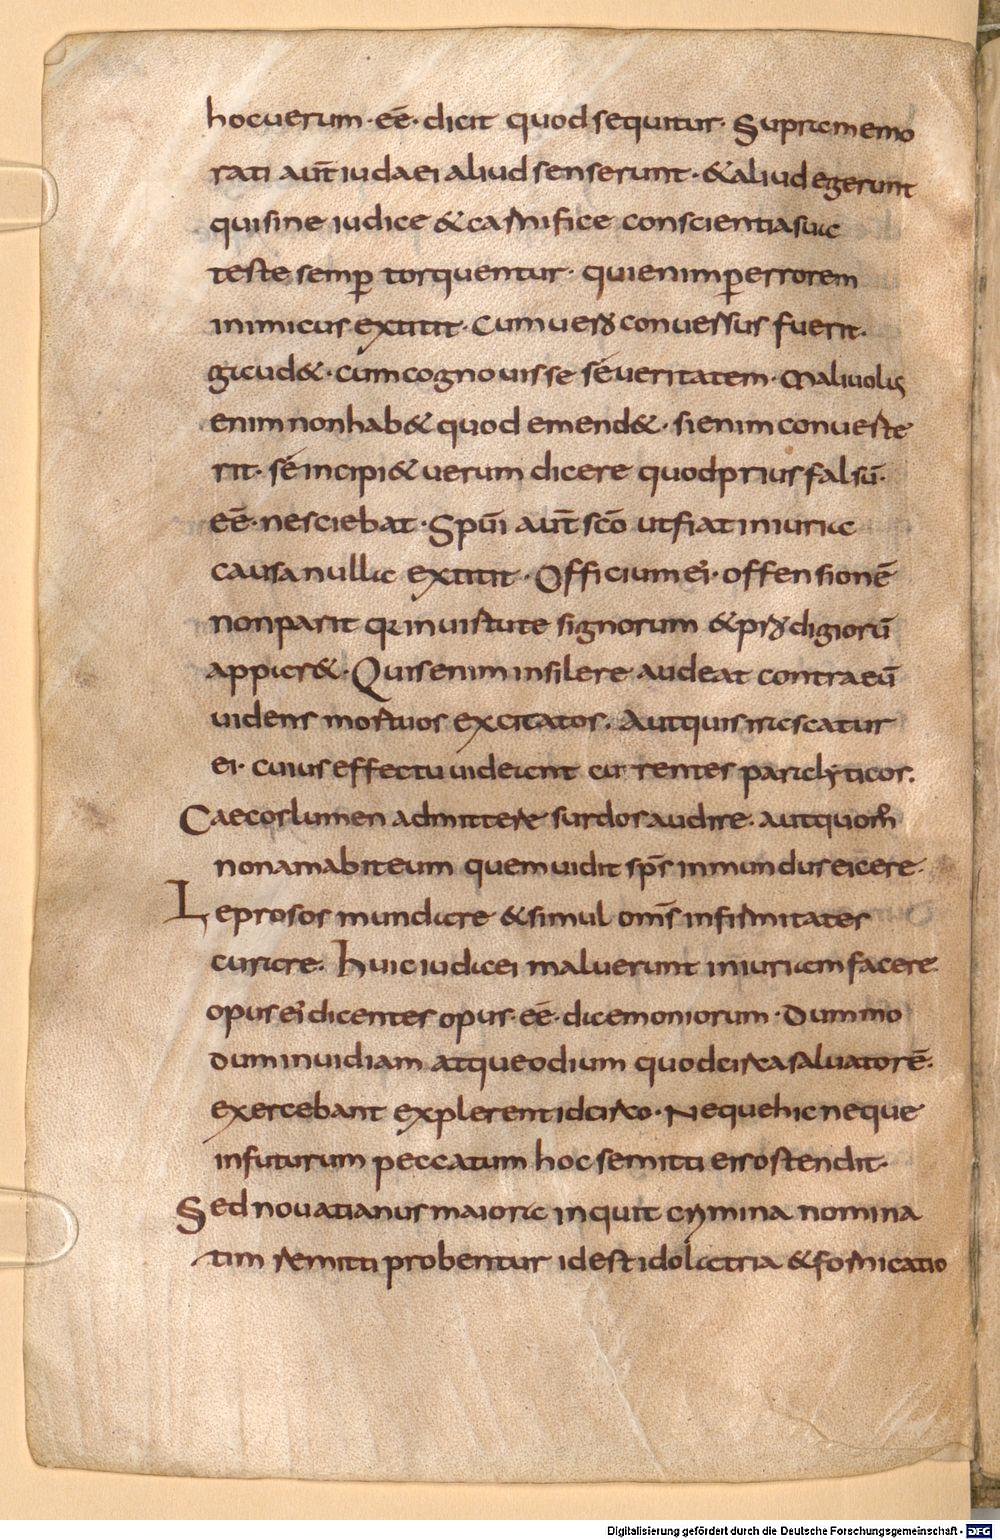 hocuerum · eē · dicit quod sequitur · Supramemo
rati aut̄ iudaei aliud senserunt · & aliud egerunt
qui sine iudice & carnifice conscientia sua
teste semp̄ torquentur · qui enim p̄ errorem
inimicus extitit · cum uero conuersus fuerit ·
gaud& · cum cognouisse seueritatem · Maliuolis
enim non hab& quod emend& · si enim conuerte
rit · se incipi& uerum dicere quod prius falsū ·
eē · nesciebat · Spūi aut̄ scō ut fiat iniuriae
causa nulla extitit · Officium ei · offensionē
non parit qa in uirtute signorum & prodigiorū
appar& · Quis enim insilere audeat contra eū
uidens mortuos excitatos · Aut quis irascatur
ei · cuius effectu uideant currentes paralyticos ·
Caecos lumen admittere surdos audire · aut quom̄
non amabit eum quem uidit sps̄ inmundus eicere ·
Leprosos mundare & simul oms̄ infirmitates
curare · Huic iudaei maluerunt iniuriam facere
opus ei dicentes opus · eē · daemoniorum · Dummo
dum inuidiam atque odium quod circa saluatorē ·
exercebant explerent idcirco · Neque hic neque
in futurum peccatum hoc remitti eis ostendit ·
Sed nouatianus maiora inquit crimina nomina
tim remitti probentur id est idolatria & fornicatio
Digitalisierung gefördert durch die Deutsche Forschungsgemeinschaft - DFG